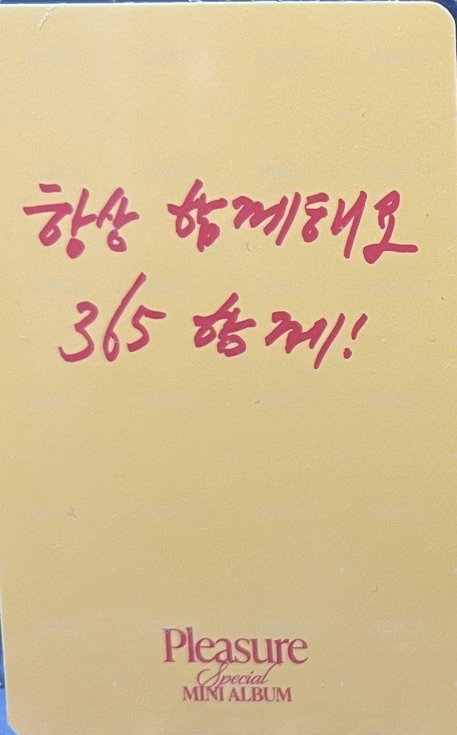 항상 함께해요
365 함께!
Pleasure
Special
MINI ALBUM